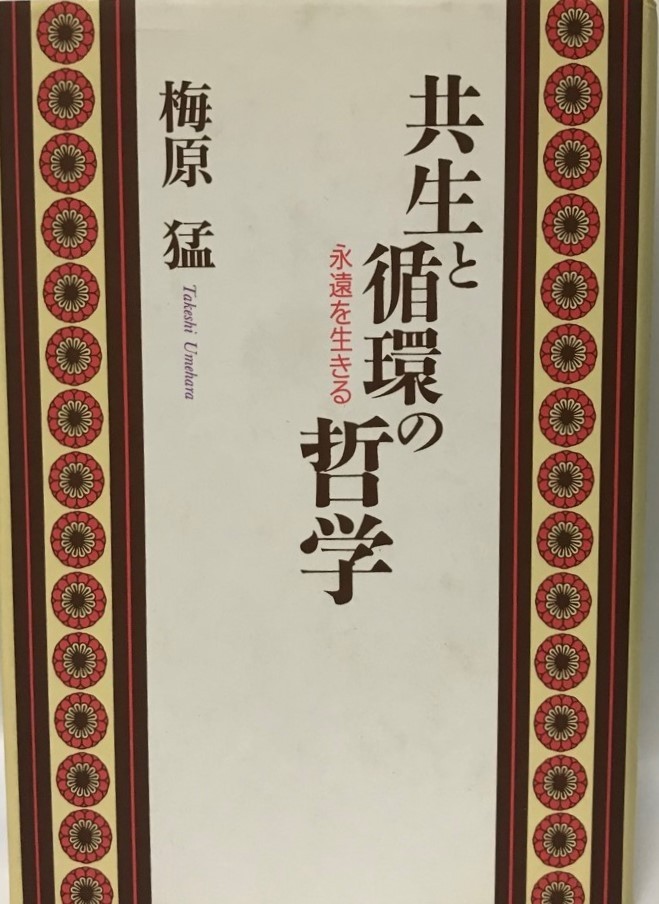 共生と循環の哲学
永遠を生きる
梅原 猛
Takeshi Umehara